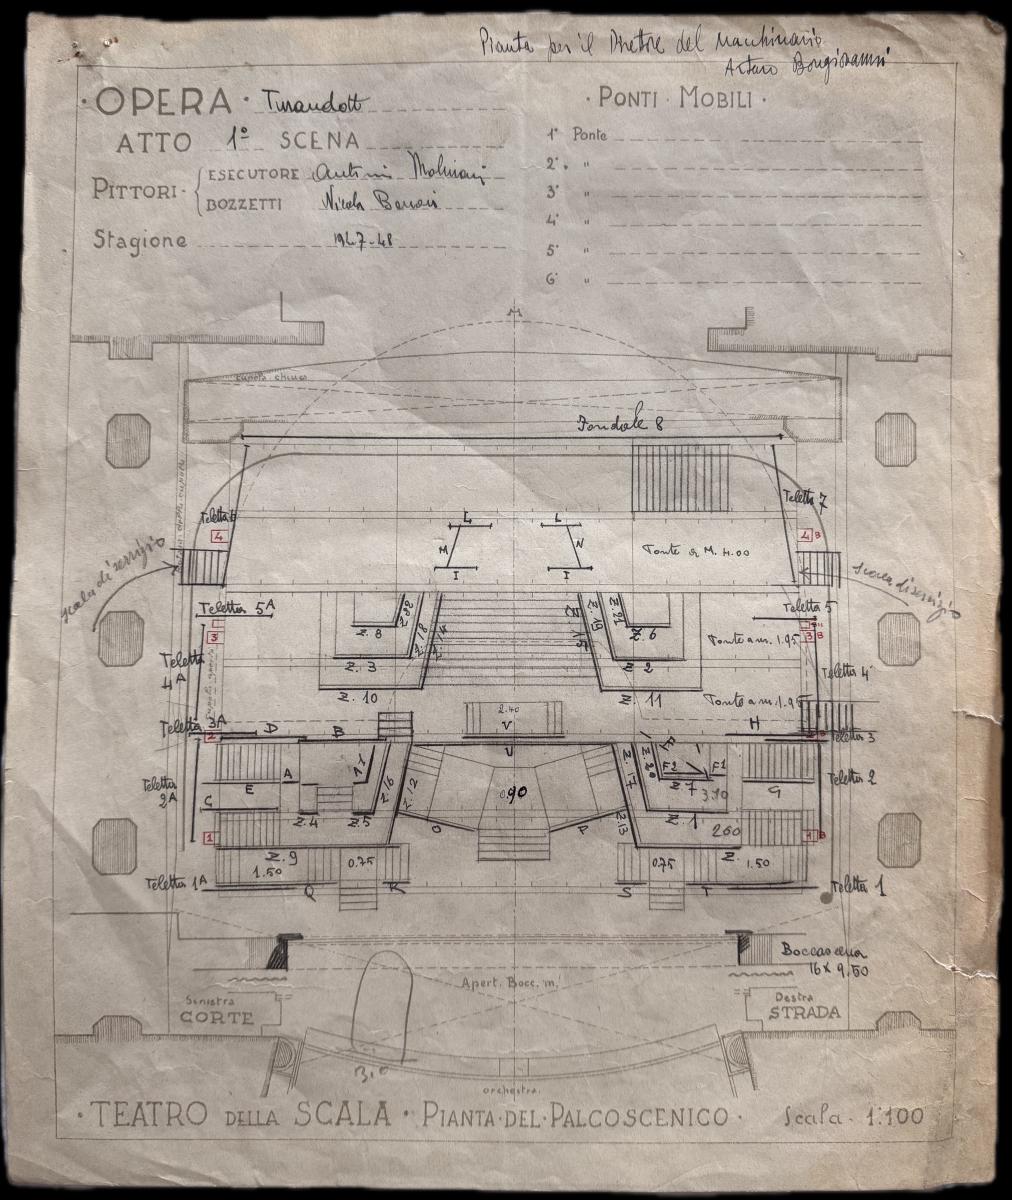 Pianta per il Direttore del Macchinario
Arturo Bongiovanni
· OPERA · Turandott
ATTO 1º SCENA
PITTORI · ESECUTORE
BOZZETTI Nicola Benois
Stagione 1947-48
· PONTI · MOBILI ·
1° Ponte
2° "
3° "
4° "
5° "
6° "
cupola chiusa
Fondale 8
Teletta 6
Teletta 7
4
4 B
L L
M N
I I
Ponte a M. 4.00
scala di servizio
scala di servizio
Teletta 5A
Teletta 5
3
3 B
Z. 8
Z. 18
Z. 14
Z. 15
Z. 19
Z. 21
Z. 6
Z. 3
Z. 2
Z. 10
Z. 11
Ponte a m. 1.95
Ponte a m. 1.95
Teletta 4A
Teletta 4
cupola aperta
Teletta 3A
Teletta 3
2
D B
2.40
V
U
H
Teletta 2A
Teletta 2
E A
C
Z. 16
Z. 12
0.90
Z. 17
Z. 20
F2 F1
Z. 7
3.10
G
Z. 4 Z. 5
O P
Z. 13
Z. 1
2.60
1
1 B
Z. 9
1.50
0.75
0.75
Z. 1.50
Teletta 1A
Q R
S T
Teletta 1
Boccascena
16 x 9.50
Apert. Bocc. m.
Sinistra
CORTE
Destra
STRADA
orchestra
· TEATRO DELLA SCALA · PIANTA · DEL · PALCOSCENICO · Scala · 1:100